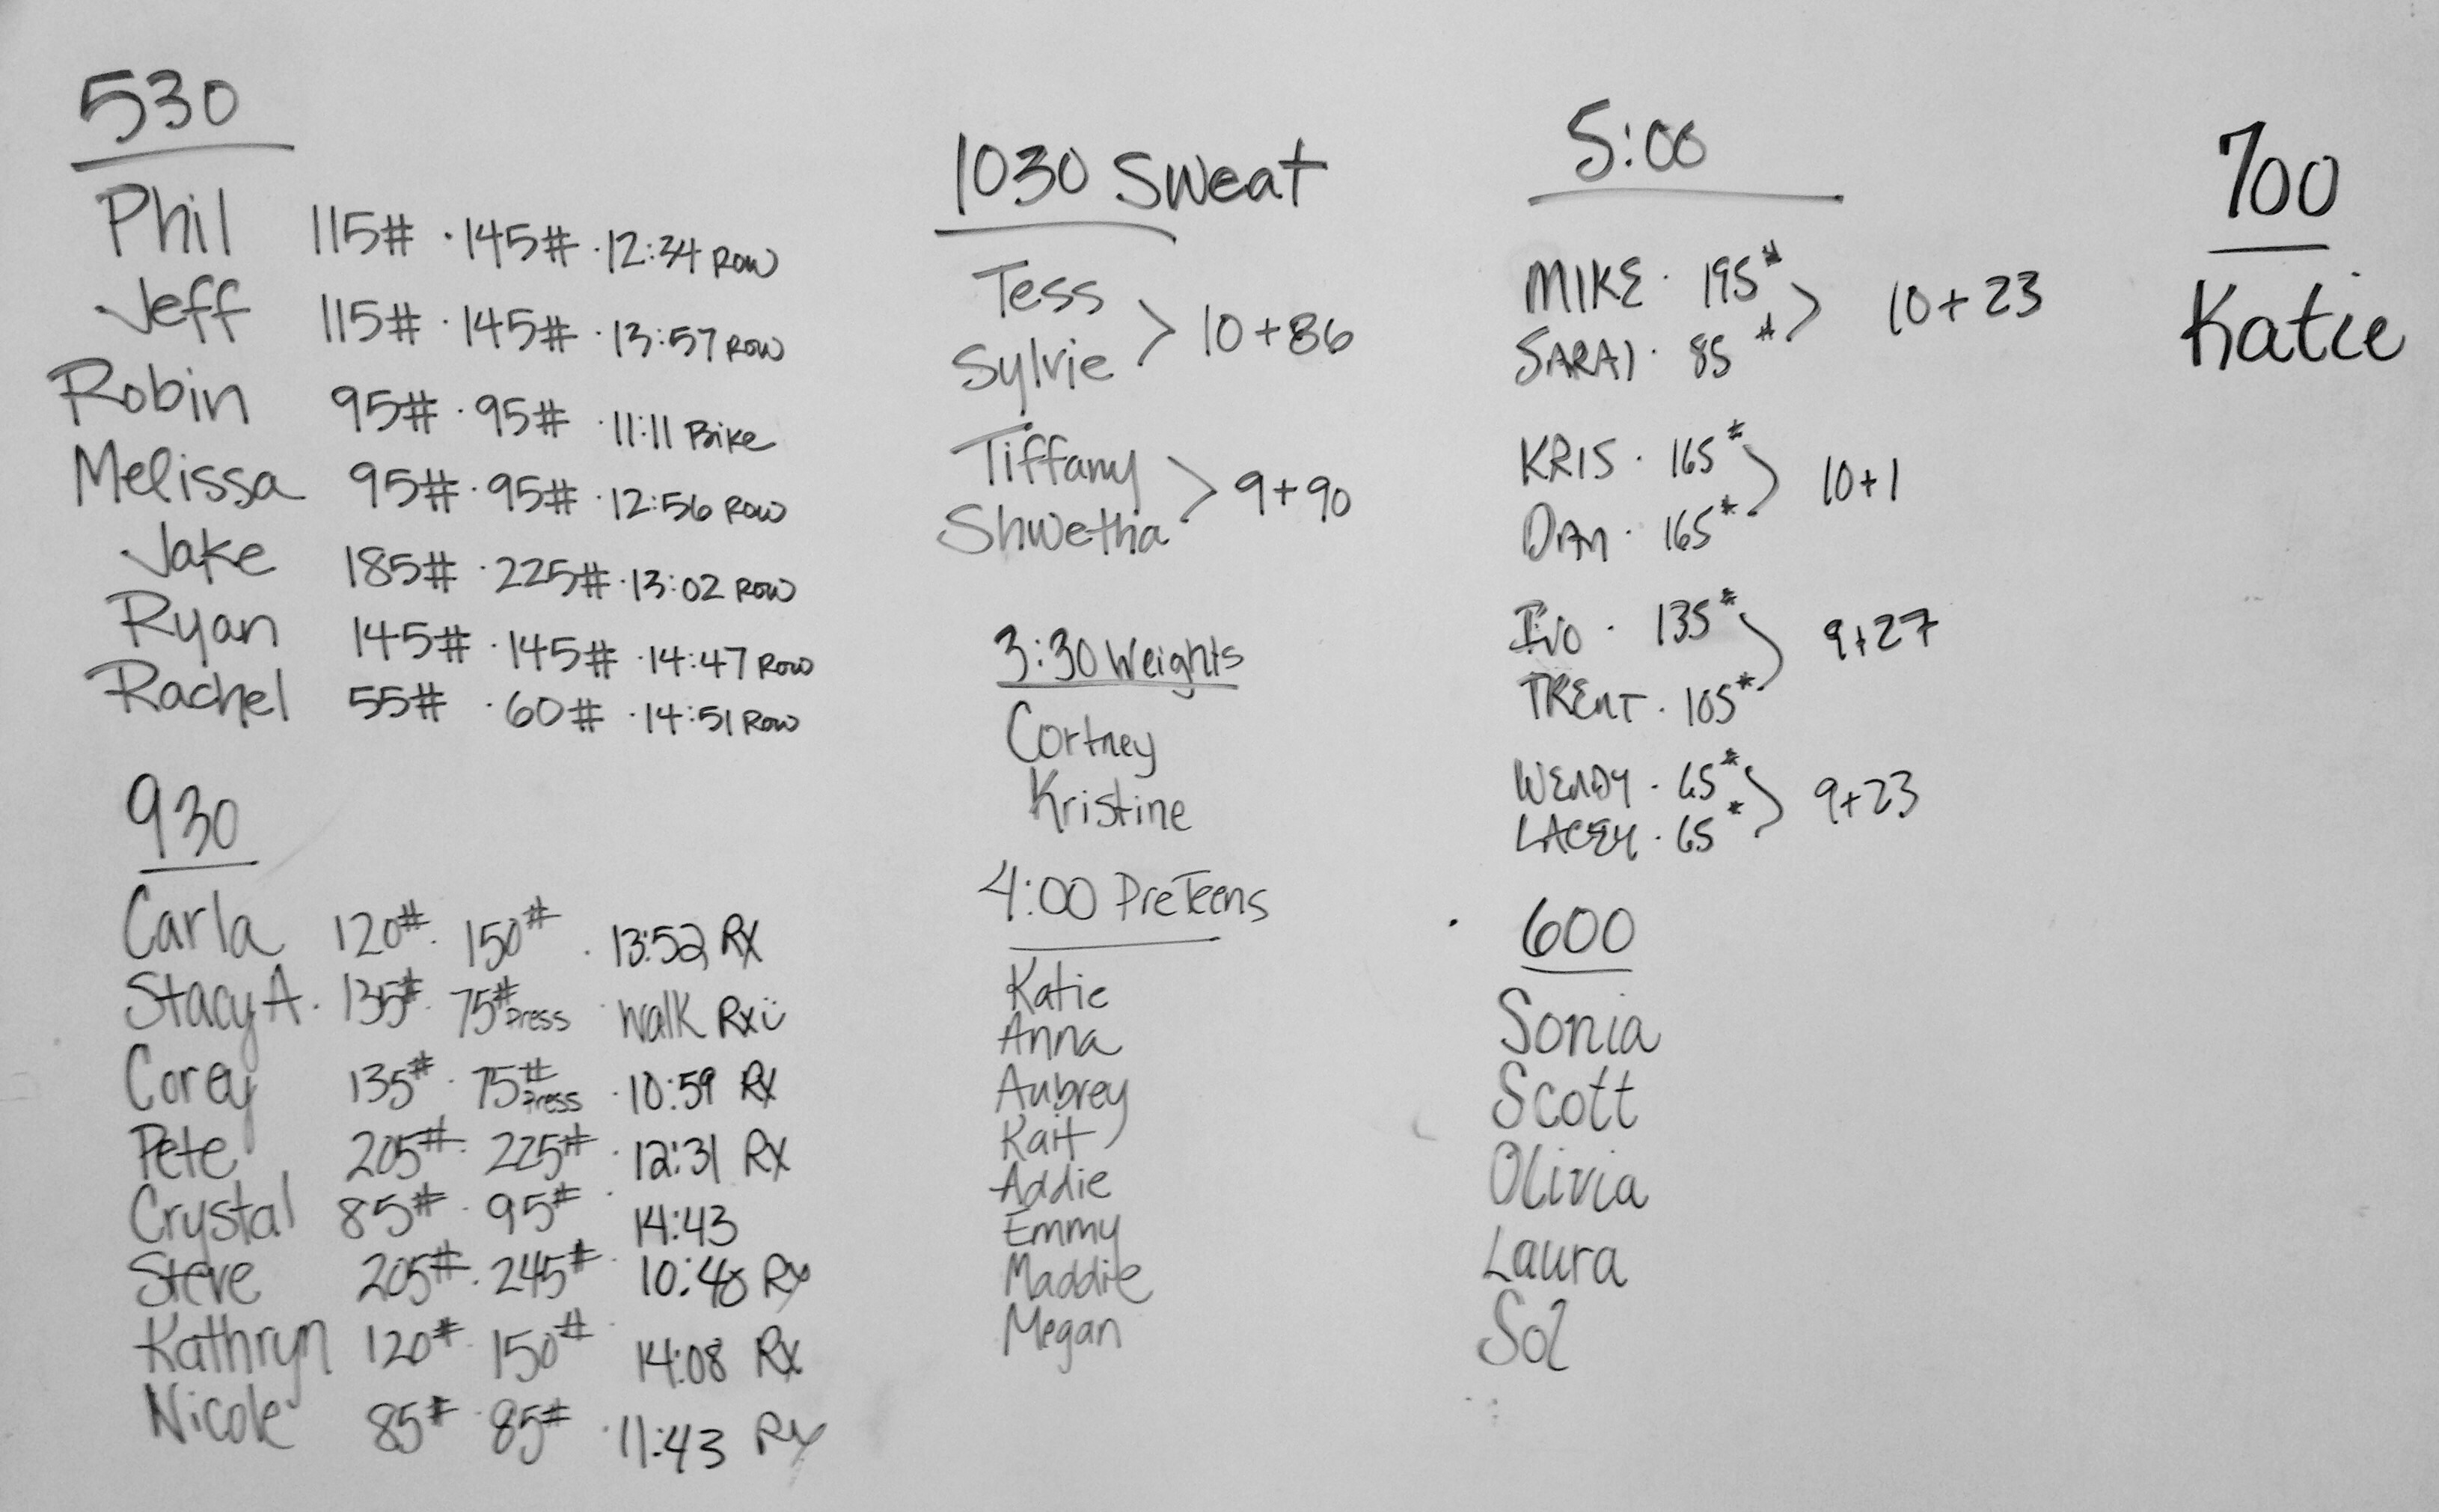 530
Phil 115# · 145# · 12:34 ROW
Jeff 115# · 145# · 13:57 ROW
Robin 95# · 95# · 11:11 Bike
Melissa 95# · 95# · 12:56 ROW
Jake 185# · 225# · 13:02 ROW
Ryan 145# · 145# · 14:47 ROW
Rachel 55# · 60# · 14:51 ROW
930
Carla 120# · 150# · 13:52 RX
Stacy A. 135# · 75# Press · Walk RX ü
Corey 135# · 75# Press · 10:59 RX
Pete 205# · 225# · 12:31 RX
Crystal 85# · 95# · 14:43
Steve 205# · 245# · 10:48 RX
Kathryn 120# · 150# · 14:08 RX
Nicole 85# · 85# · 11:43 RX
1030 Sweat
Tess
Sylvie > 10+86
Tiffany
Shwetha > 9+90
3:30 Weights
Cortney
Kristine
4:00 PreTeens
Katie
Anna
Aubrey
Kait
Addie
Emmy
Maddie
Megan
5:00
MIKE · 195#
SARAI · 85# > 10+23
KRIS · 165#
DAN · 165# > 10+1
IVO · 135#
TRENT · 105# > 9+27
WENDY · 65#
LACEY · 65# > 9+23
600
Sonia
Scott
Olivia
Laura
Sol
700
Katie